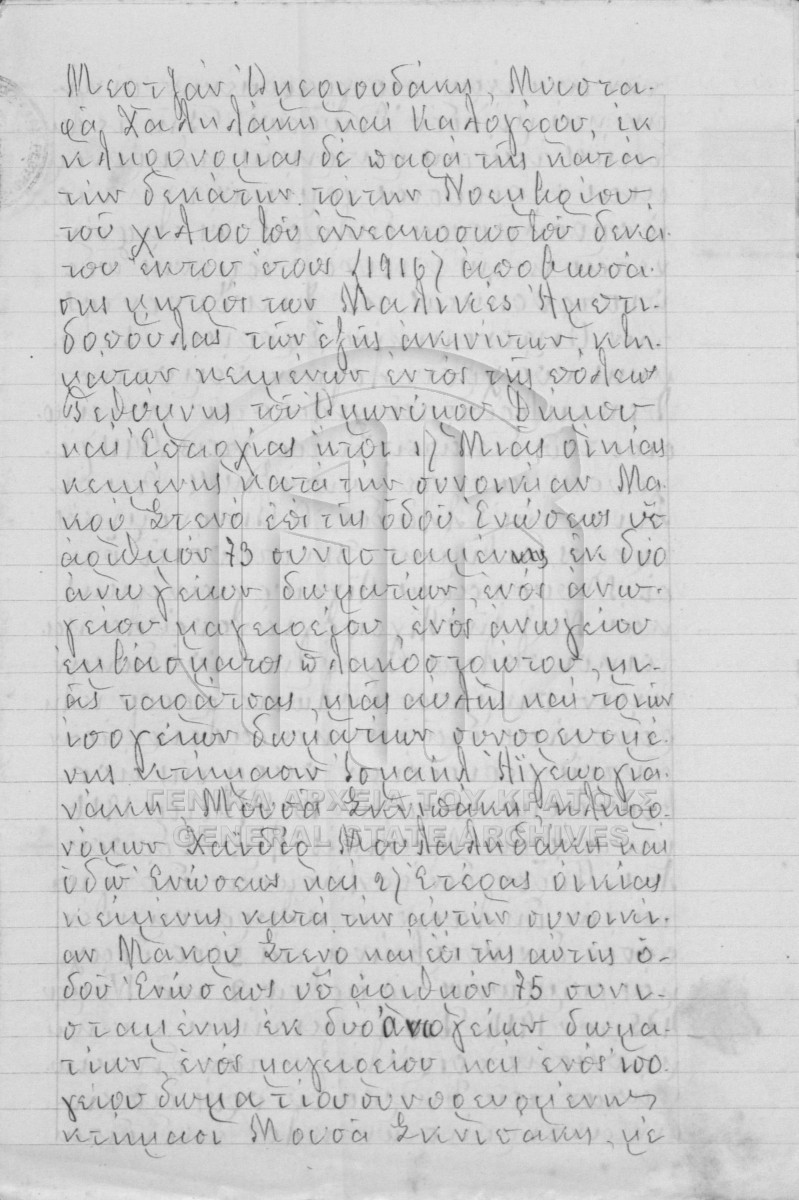 Μεστζάν Δημεριουδάκη, Μουστα-
φά Χαληλάκη καί Καλογέρου, ἐκ
κληρονομίας δέ παρά τῆς κατά
τήν δεκάτην τρίτην Νοεμβρίου
τοῦ χιλιοστοῦ ἐννεακοσιοστοῦ δεκά-
του ἕκτου ἔτους (1916) ἀποβιωσά-
σης μητρός των Μαλικές Ἀμετι-
δοπούλας τῶν ἑξῆς ἀκινήτων κτη-
μάτων κειμένων ἐντός τῆς πόλεως
Ρεθύμνης τοῦ ὁμωνύμου Δήμου
καί Ἐπαρχίας ἤτοι 1) Μιᾶς οἰκίας
κειμένης κατά τήν συνοικίαν Μα-
κρύ Στενό ἐπί τῆς ὁδοῦ Ἑνώσεως ὑπ'
ἀριθμόν 73 συνισταμένης ἐκ δύο
ἀνωγείων δωματίων, ἑνός ἀνω-
γείου μαγειρείου, ἑνός ἀνωγείου
ἐμβάσματος πλακοστρώτου, μι-
ᾶς ταράτσας, μιᾶς αὐλῆς καί τριῶν
ἰσογείων δωματίων συνορευομέ-
νης κτήμασιν Ἰσμαήλ
νάκη, Μουσᾶ Σκνιπάκη, κληρο-
νόμων Χαϊδέρ Μουλαληδάκη καί
ὁδῷ Ἑνώσεως καί 2) Ἑτέρας οἰκίας
κειμένης κατά τήν αὐτήν συνοικί-
αν Μακρύ Στενό καί ἐπί τῆς αὐτῆς ὁ-
δοῦ Ἑνώσεως ὑπ' ἀριθμόν 75 συνι-
σταμένης ἐκ δύο ἀνωγείων δωμα-
τίων, ἑνός μαγειρείου καί ἑνός ἰσο-
γείου δωματίου συνορευομένης
κτήμασι Μουσᾶ Σκνιπάκη, μέ
ΓΕΝΙΚΑ ΑΡΧΕΙΑ ΤΟΥ ΚΡΑΤΟΥΣ
GENERAL STATE ARCHIVES